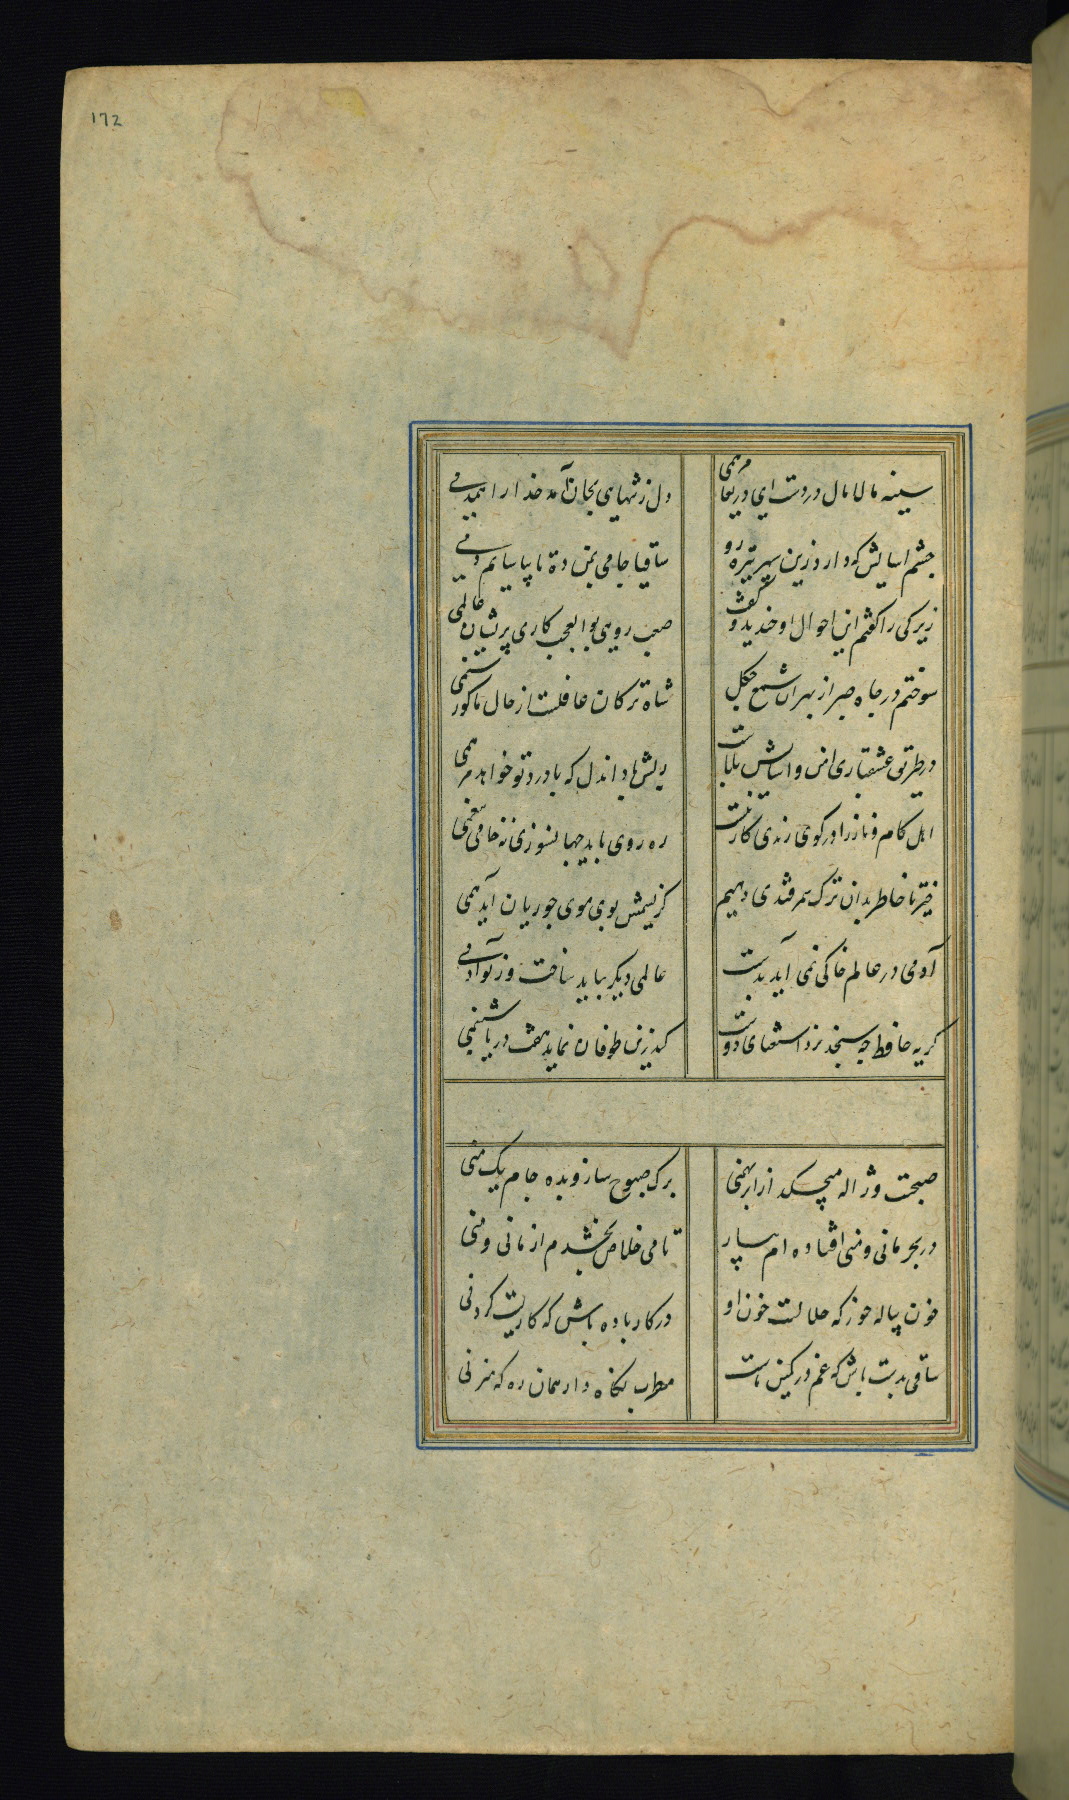 172
سینه مالامال دردست ای دریغا مرهمی دل ز تنهایی بجان آمد خدا را همدمی
چشم اسایش که دارد زین سپهر تیزه رو ساقیا جامی بمن ده تا بیاسایم دمی
زیرکی را گفتم این احوال او خندید و گفت صعب روزی بوالعجب کاری پریشان عالمی
سوختم در چاه صبر از بهر ان شمع چگل شاه ترکان غافلست از حال ما کو رستمی
در طریق عشقبازی امن و اسایش بلاست ریش باد اندل که با درد تو خواهد مرهمی
اهل کام و ناز را در کوی رندی کار نیست ره روی باید جهانسوزی نه خامی بیغمی
خیز تا خاطر بدان ترک سمرقندی دهیم کز نسیمش بوی موی جوریان آید همی
آدمی در عالم خاکی نمی آید بدست عالمی دیگر بباید ساخت وز نو آدمی
کریه حافظ چه سنجد نزد استغنای دوست کندرین طوفان نماید هفت دریا شبنمی
صبحست و ژاله میچکد از ابر بهمنی برک صبوح ساز و بده جام یک منی
در بحر مانی و منی افتاده ام بیار تا می خلاص بخشدم از مانی و منی
خون پیاله خور که حلالست خون او در کار باده باش که کاریست کردنی
ساقی بدست باش که غم در کمین ماست مطرب نگاه دار همان ره که میزنی